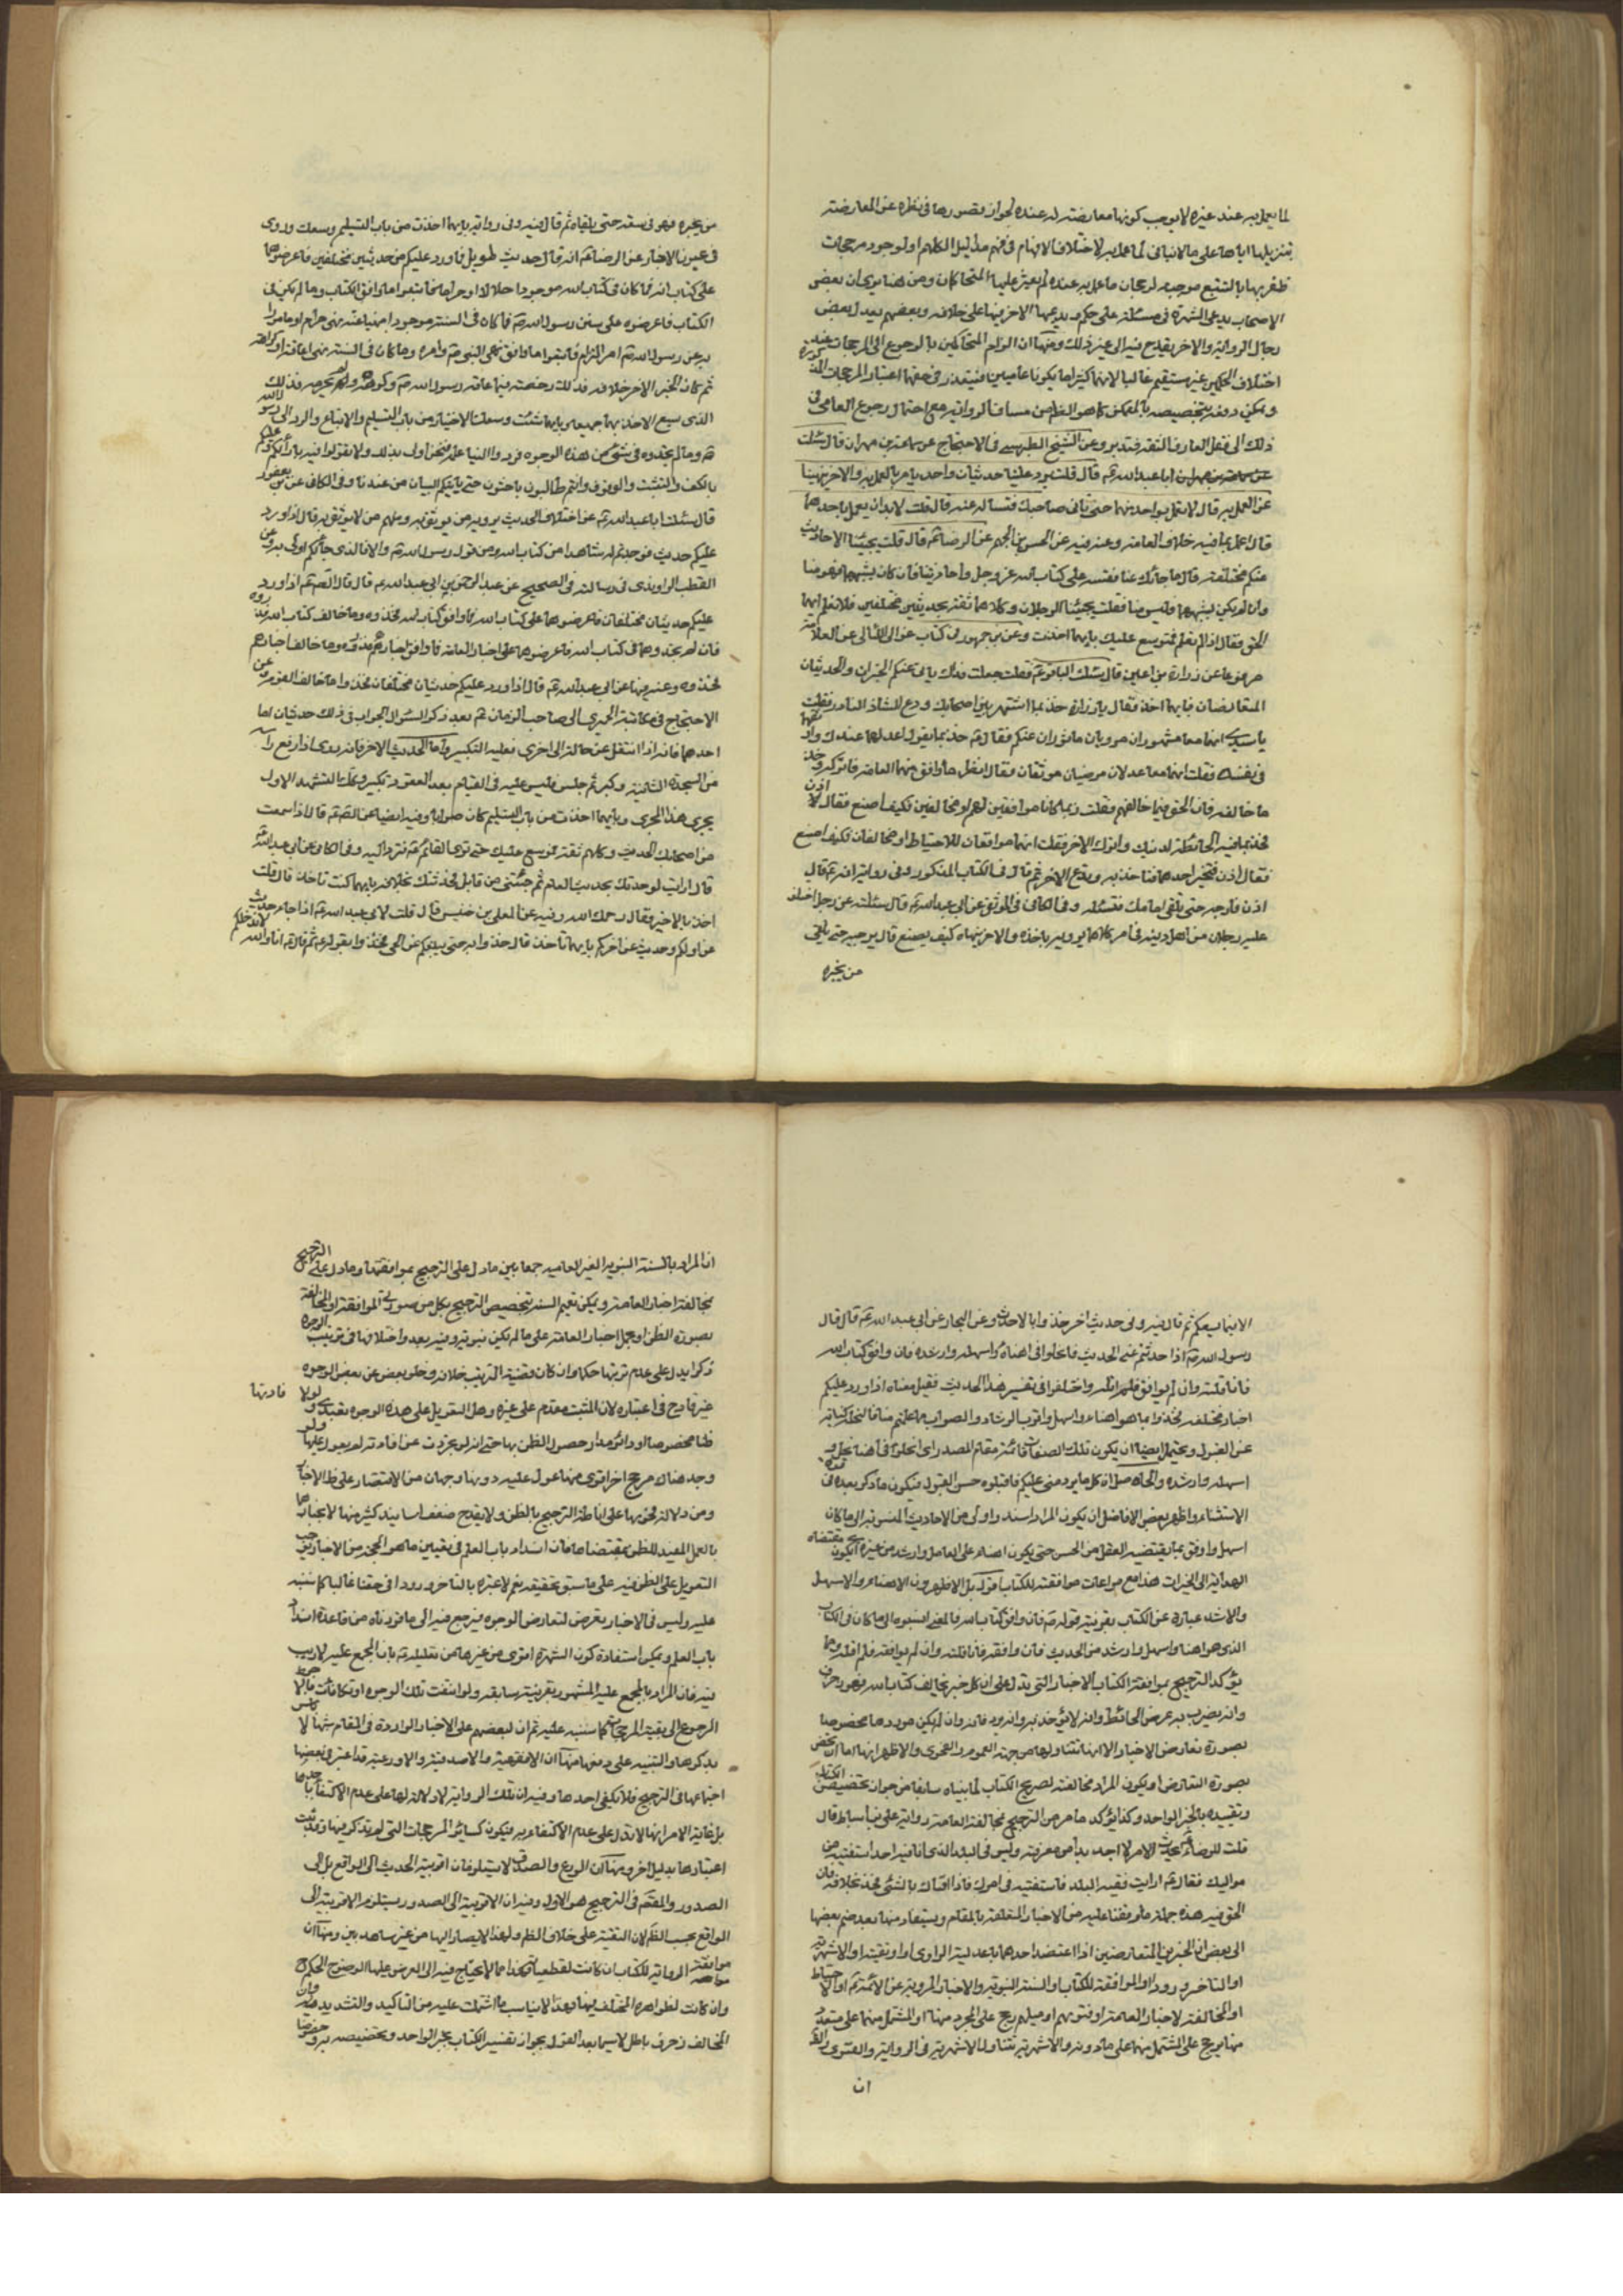 لما يعمل به عند غيره لا يوجب كونها معارضة له عنده لجواز قصورها في نظره عن المعارضة
بتنزيلها اياها على ما لا ينافي لما عمل به لاختلاف الافهام في فهم مداليل الكلام او لوجود مرجحات
ظفر بها بالتتبع موجبة لرجحان ما عمل به عنده لم يعثر عليها المتحاكمان ومن هنا يرى ان بعض
الاصحاب يدعي الشهرة في مسئلة على حكم ويدعيها الاخر فيها على خلافه وبعضهم يعدل بعض
رجال الرواية والاخر يقدح فيه الى غير ذلك ومنها ان الزام المتحاكمين بالرجوع الى المرجحات عند
اختلاف الحكمين غير مستقيم غالبا لانهما كثيرا ما يكونا عاميين فيتعذر في حقهما اعتبار المرجحات المذكورة
ويمكن دفعه بتخصيصه بالمتمكن كما هو الظاهر من مساق الرواية مع احتمال رجوع العامي في
ذلك الى نقل العارف الثقة فتدبر وعن الشيخ الطبرسي في الاحتجاج عن سماعة بن مهران قال سئلت
ابا عبد الله ع قال قلت يرد علينا حديثان واحد يامر بالعمل به والاخر ينهينا
عن العمل به قال لا تعمل بواحد منهما حتى تاتي صاحبك فتسأله عنه قال قلت لا بد ان يعمل باحدهما
قال اعمل بما فيه خلاف العامة وعنه فيه عن الحسن بن الجهم عن الرضا ع قال قلت يجيئنا الاحاديث
عنكم مختلفة قال ما جائك عنا فقسه على كتاب الله عز وجل واحاديثنا فان كان يشبههما فهو منا
وان لم يكن يشبههما وليس منا فقلت يجيئنا الرجلان وكلاهما ثقة بحديثين مختلفين فلا نعلم ايهما
الحق فقال اذا لم تعلم فموسع عليك بايهما اخذت وعن بن جمهور في كتاب عوالي اللئالي عن العلامة
مرفوعا عن زرارة بن اعين قال سئلت الباقر ع فقلت جعلت فداك ياتي عنكم الخبران والحديثان
المتعارضان فبايهما اخذ فقال يا زرارة خذ بما اشتهر بين اصحابك ودع الشاذ النادر فقلت
يا سيدي انهما معا مشهوران مرويان ماثوران عنكم فقال ع خذ بما يقول اعدلهما عندك واوثقهما
في نفسك فقلت انهما معا عدلان مرضيان موثقان فقال انظر ما وافق منهما العامة فاتركه وخذ
ما خالفه فان الحق فيما خالفهم فقلت ربما كانا موافقين لهم او مخالفين فكيف اصنع فقال اذن
فخذ بما فيه الحائطة لدينك واترك الاخر فقلت انهما موافقان للاحتياط او مخالفان فكيف اصنع
فقال اذن فتخير احدهما فتاخذ به وتدع الاخر ثم قال في الكتاب المذكور وفي رواية انه ع قال
اذن فارجه حتى تلقى امامك فتسئله وفي الكافي في الموثق عن ابي عبد الله ع قال سئلته عن رجل اختلف
عليه رجلان من اهل دينه في امر كلاهما يرويه يامر باخذه والاخر ينهاه كيف يصنع قال يرجيه حتى يلقى
من يخبره
من يخبره فهو في سعة حتى يلقاه ثم قال فيه وفي رواية بايهما اخذت من باب التسليم وسعك وروى
في عيون الاخبار عن الرضا ع انه قال حديث طويل فما ورد عليكم من حديثين مختلفين فاعرضوهما
على كتاب الله فما كان في كتاب الله موجودا حلالا او حراما فاتبعوا ما وافق الكتاب وما لم يكن في
الكتاب فاعرضوه على سنن رسول الله ص فما كان في السنة موجودا منهيا عنه نهي حرام او مامورا
به عن رسول الله ص امر الزام فاتبعوا ما وافق نهي النبي ص وامره وما كان في السنة نهي اعافة او كراهة
ثم كان الخبر الاخر خلافه فذلك رخصة فيما عافه رسول الله ص وكرهه ولم يحرمه فذلك
الذي يسع الاخذ بهما جميعا بايهما شئت وسعك الاختيار من باب التسليم والاتباع والرد الى رسول الله
ص وما لم تجدوه في شيء من هذه الوجوه فردوا الينا علمه فنحن اولى بذلك ولا تقولوا فيه بارائكم وعليكم
بالكف والتثبت والوقوف وانتم طالبون باحثون حتى ياتيكم البيان من عندنا وفي الكافي عن بن ابي يعفور
قال سئلت ابا عبد الله ع عن اختلاف الحديث يرويه من نوثق به ومنهم من لا نوثق به قال اذا ورد
عليكم حديث فوجدتم له شاهدا من كتاب الله ومن قول رسول الله ص والا فالذي جائكم اولى به وعن
القطب الراوندي في رسالته في الصحيح عن عبد الرحمن بن ابي عبد الله ع قال قال الصادق ع اذا ورد
عليكم حديثان مختلفان فاعرضوهما على كتاب الله فما وافق كتاب الله فخذوه وما خالف كتاب الله فذروه
فان لم تجدوهما في كتاب الله فاعرضوهما على اخبار العامة فما وافق اخبارهم فذروه وما خالف اخبارهم
فخذوه وعنه فيها عن ابي عبد الله ع قال اذا ورد عليكم حديثان مختلفان فخذوا ما خالف القوم وعن
الاحتجاج في مكاتبة الحميري الى صاحب الزمان ع بعد ذكر السؤال الجواب في ذلك حديثان اما
احدهما فانه اذا انتقل عن حالة الى اخرى فعليه التكبير واما الحديث الاخر فانه روي اذا رفع راسه
من السجدة الثانية وكبر ثم جلس فليس عليه في القيام بعد القعود تكبير وكذلك التشهد الاول
يجري هذا المجرى وبايهما اخذت من باب التسليم كان صوابا وفيه ايضا عن الصادق ع قال اذا سمعت
من اصحابك الحديث وكلهم ثقة فموسع عليك حتى ترى القائم ع فترد اليه وفي الكافي عن ابي عبد الله ع
قال ارايت لو حدثتك بحديث العام ثم جئتني من قابل فحدثتك بخلافه بايهما كنت تاخذ قال قلت
اخذ بالاخير فقال رحمك الله وفيه عن المعلى بن خنيس قال قلت لابي عبد الله ع اذا جاء حديث
عن اولكم وحديث عن اخركم بايهما تاخذ قال خذوا به حتى يبلغكم عن الحي فخذوا بقوله ثم قال ع انا والله لا ندخلكم
الا فيما يسعكم ثم قال فيه وفي حديث اخر خذوا بالاحدث وعن البحار عن ابي عبد الله ع قال قال
رسول الله ص اذا حدثتم عني الحديث فانحلوني اهنأه واسهله وارشده فان وافق كتاب الله
فانا قلته وان لم يوافق فلم اقله واختلفوا في تفسير هذا الحديث فقيل معناه اذا ورد عليكم
اخبار مختلفة فخذوا بما هو اهنا واسهل واقرب الى الرشاد والصواب مما علمتم منا فالنحلة كناية
عن القبول ويحتمل ايضا ان يكون تلك الصفات قائمة مقام المصدر اي انحلوني اهنأ نحل و
اسهله وارشده والحاصل ان كل ما يرد مني عليكم فاقبلوه حسن القبول فيكون ما ذكر بعده في قوة
الاستثناء واظهر بعض الافاضل ان يكون المراد اسند واولى من الاحاديث المنسوبة الى ما كان
اسهل واوفق بما يقتضيه العقل من الحسن حتى يكون اهنأ على العامل وارشد من غيره اي يكون مقتضاه
الهداية الى الخيرات هذا مع مراعات موافقته للكتاب اقول بل الاظهر ان الاهنا والاسهل
والارشد عبارة عن الكتاب بقرينة قوله ص فان وافق كتاب الله فالمعنى انسبوا الي ما كان في الكتاب
الذي هو اهنا واسهل وارشد من الحديث فان وافقه فانا قلته وان لم يوافقه فلم اقله ومما
يؤكد الترجيح بموافقة الكتاب الاخبار التي تدل على ان كل خبر يخالف كتاب الله فهو زخرف
وانه يضرب به عرض الحائط وانه لا يؤخذ به وانه يرد فانه وان لم يكن موردها مخصوصا
بصورة تعارض الاخبار الا انها تتناولها من جهة العموم والفحوى والاظهر انها اما ان تختص
بصورة التعارض او يكون المراد مخالفته لصريح الكتاب لما بيناه سابقا من جواز تخصيص الكتاب
وتقييده بالخبر الواحد وكذا يؤكد ما مر من الترجيح بمخالفة العامة رواية علي بن اسباط قال
قلت للرضا ع يحدث الامر لا اجد بدا من معرفته وليس في البلد الذي انا فيه احد استفتيه من
مواليك فقال ع ايت فقيه البلد فاستفتيه في امرك فاذا افتاك بالشيء فخذ بخلافه فان
الحق فيه هذه جملة ما وقفنا عليه من الاخبار المتعلقة بالمقام ويستفاد منها بعد ضم بعضها
الى بعض ان الخبرين المتعارضين اذا اعتضد احدهما باعدلية الراوي او اوثقيته او الاشهرية
او التاخر ورودا او الموافقة للكتاب او السنة النبوية والاخبار المروية عن الائمة ع او الاحتياط
او المخالفة لاخبار العامة او فتويهم او ميلهم رجح على المجرد منها او المشتمل منهما على متعدد
منها يرجح على المشتمل منهما على ما دونه والاشهرية تتناول الاشهرية في الرواية والفتوى والظ
ان
ان المراد بالسنة النبوية الغير العامية جمعا بين ما دل على الترجيح بموافقتها وما دل على الترجيح
بمخالفة اخبار العامة ويمكن تعميم السنة بتخصيص الترجيح بكل من صورتي الموافقة او المخالفة
بصورة الظن او بحمل اخبار العامة على ما لم تكن نبوية وفيه بعد واختلافها في ترتيب الوجوه
ذكرا يدل على عدم ترتبها حكما وان كان قضية الترتيب خلافه وخلو بعض عن بعض الوجوه
غير قادح في اعتباره لان المثبت مقدم على غيره وهل التعويل على هذه الوجوه تعبدي ولو لا افادتها
ظنا مخصوصا او دائر مدار حصول الظن بها حتى انه لو تجردت عن افادته لم يعول عليها ولو
وجد هناك مرجح اخر اقوى منها عول عليه دونها وجهان من الاقتصار على ظ الاخبار
ومن دلالة فحويها على اناطة الترجيح بالظن ولا يقدح ضعف اسانيد كثير منها لانجبارها
بالعمل المفيد للظن بمقتضاها فان انسداد باب العلم في تعيين ما هو الحجة من الاخبار يوجب
التعويل على الظن فيه على ما سبق تحقيقه نعم لا عبرة بالتاخر ورودا في حقنا غالبا كما ستنبه
عليه وليس في الاخبار تعرض لتعارض الوجوه فيرجع فيه الى ما قررناه من قاعدة انسداد
باب العلم ويمكن استفادة كون الشهرة اقوى من غيرها من تعليله ع بان المجمع عليه لا ريب
فيه فان المراد بالمجمع عليه المشهور بقرينة سابقه ولو انتفت تلك الوجوه او تكافئت فالاحوط
الرجوع الى بقية المرجحات كما سننبه عليه ثم ان لبعضهم على الاخبار الواردة في المقام شبها لا باس
بذكرها والتنبيه على دفعها منها ان الافقهية والاصدقية والاورعية قد اعتبر في بعضها
اجتماعها في الترجيح فلا يكفي احدها وفيه ان تلك الرواية لا دلالة لها على عدم الاكتفاء باحدها
بل غاية الامر انها لا تدل على عدم الاكتفاء به فيكون كسائر المرجحات التي لم تذكر فيها وقد ثبت
اعتبارها بدليل اخر ومنها ان الورع والصدق لا يستلزمان اقربية الحديث الى الواقع بل الى
الصدور والمقدم في الترجيح هو الاول وفيه ان الاقربية الى الصدور يستلزم الاقربية الى
الواقع بحسب الظ لان التقية على خلاف الظ ولهذا لا يصار اليها من غير شاهد بين ومنها ان
موافقة الرواية للكتاب ان كانت لقطعياته فهذا مما لا يحتاج فيه الى العرض عليها لوضوح الحكم ح
وان كانت لظواهره المختلف فيها فهذا لا يناسب ما اشتملت عليه من التاكيد والتشديد وان
المخالف زخرف باطل لا سيما بعد القول بجواز تفسير الكتاب بخبر الواحد وتخصيصه به